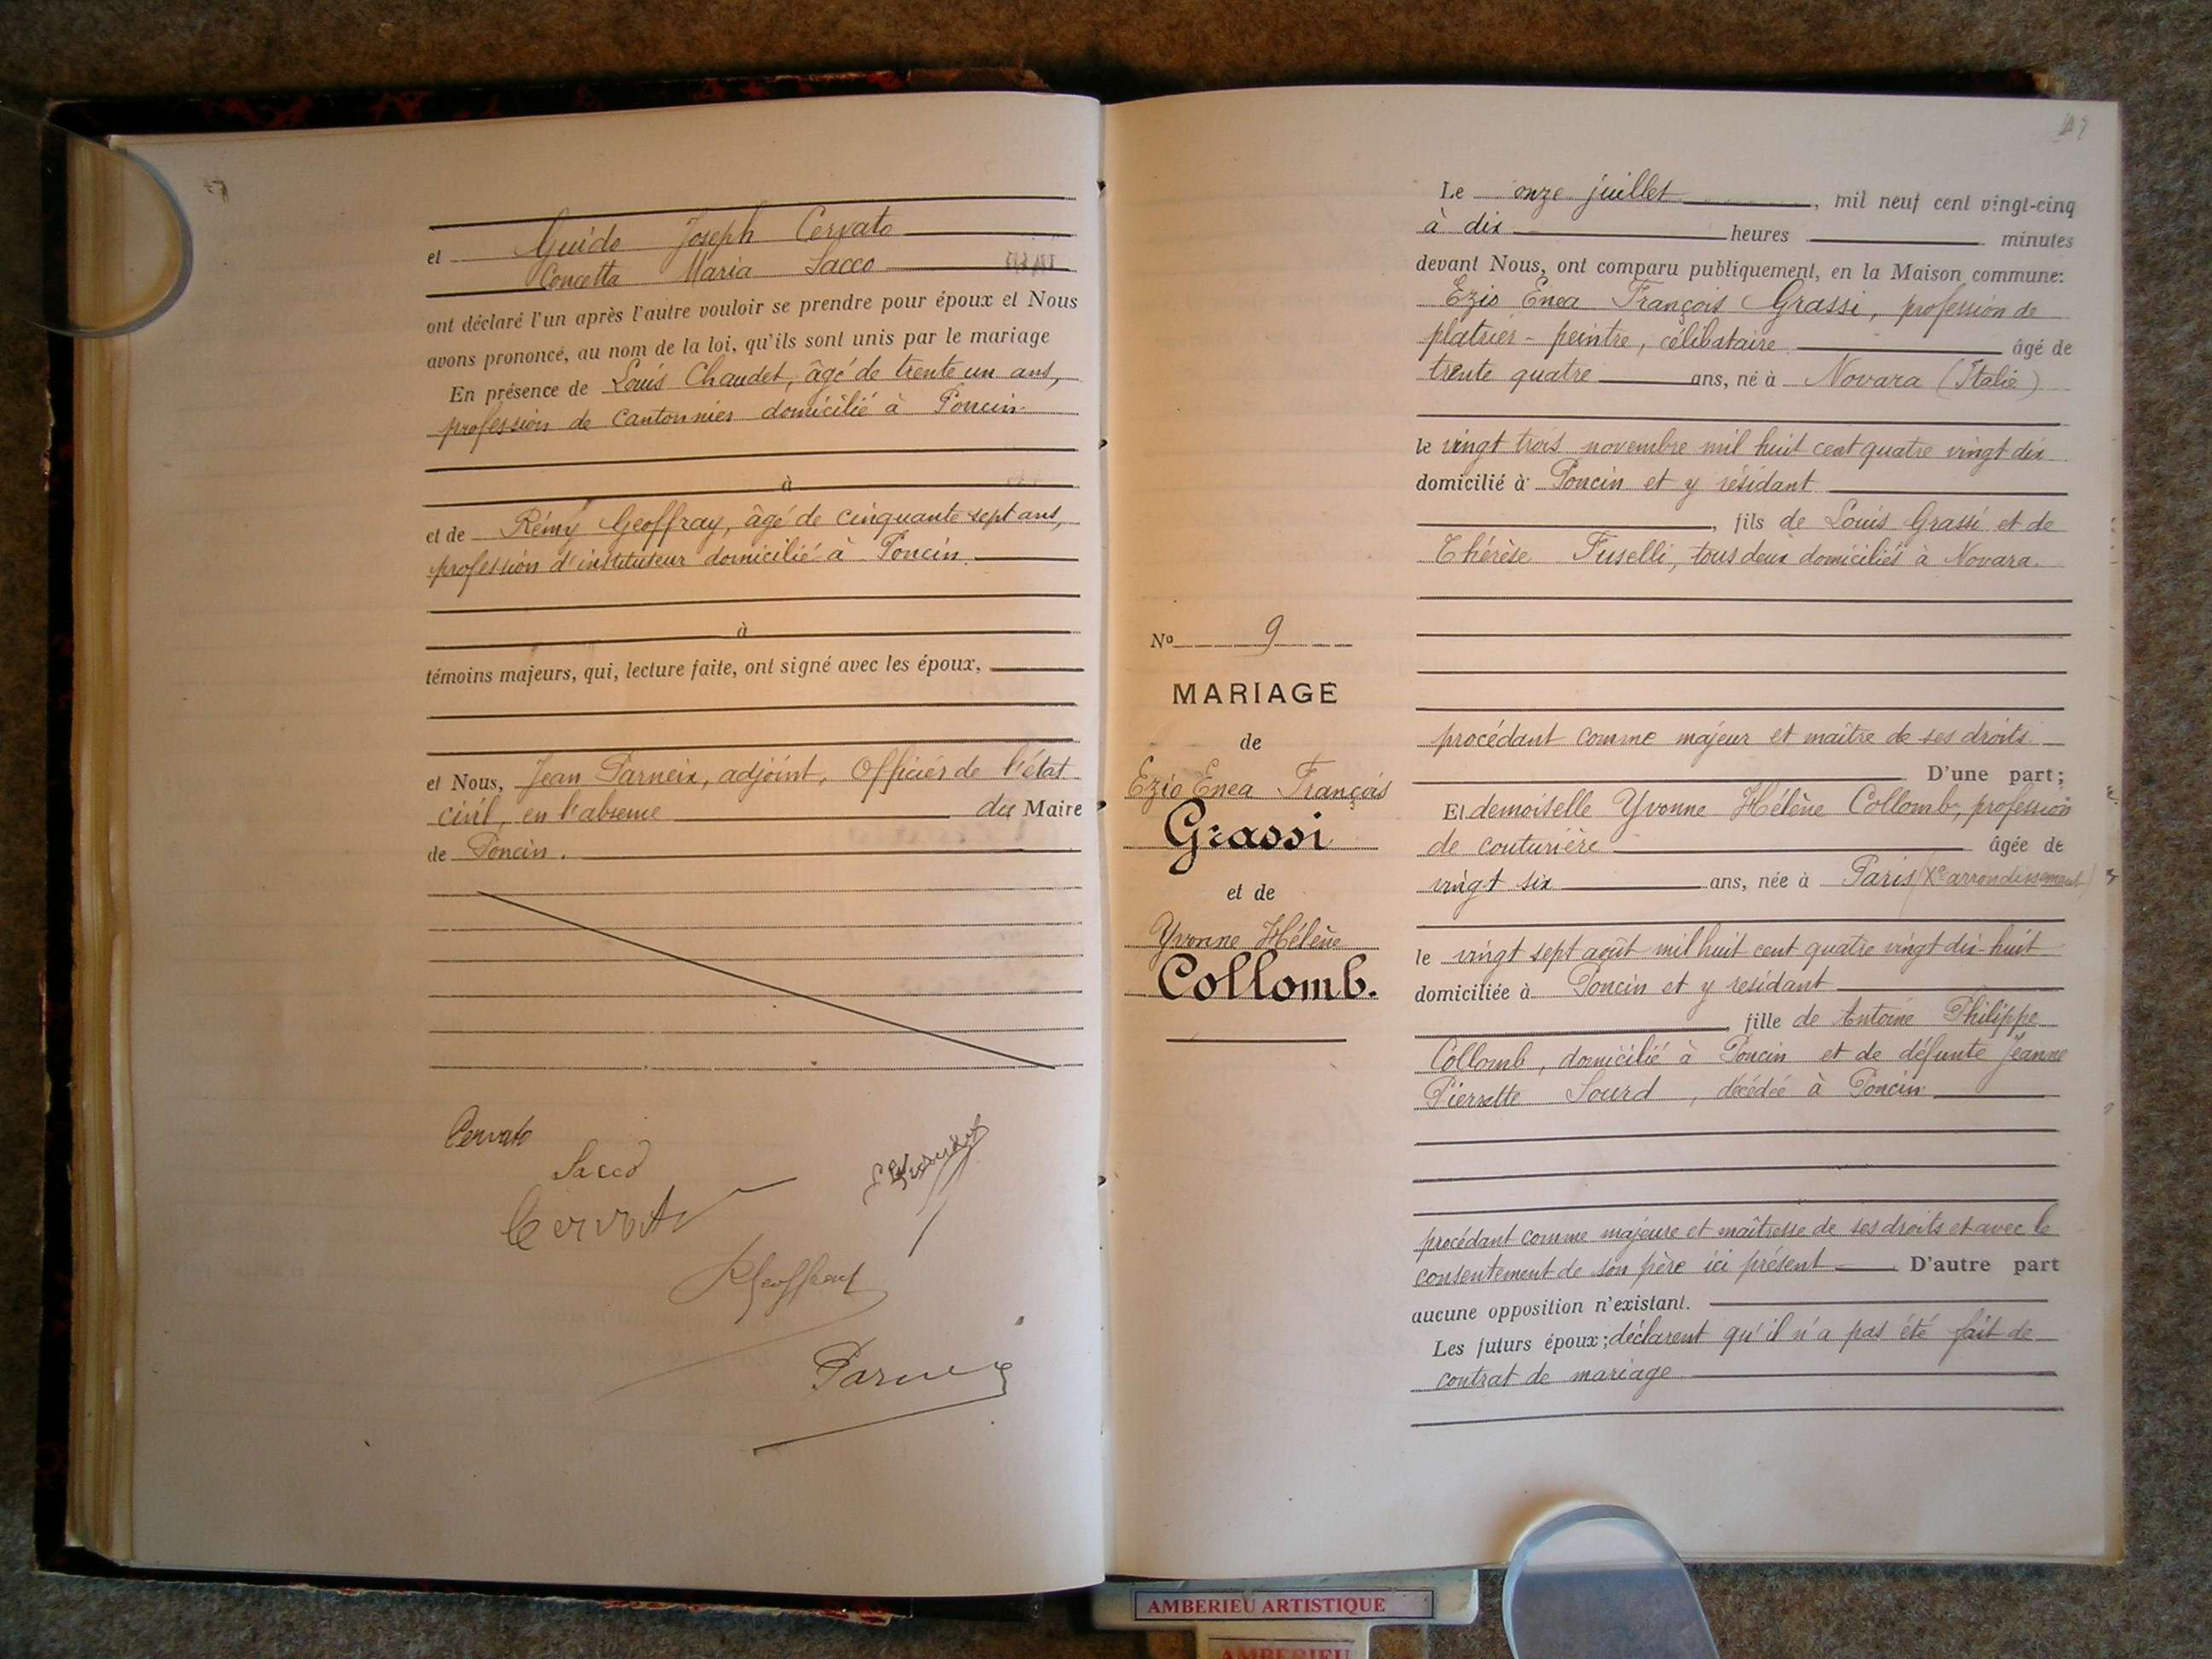 Guido Joseph Cervato
et
Concetta Maria Sacco
ont déclaré l'un après l'autre vouloir se prendre pour époux et Nous
avons prononcé, au nom de la loi, qu'ils sont unis par le mariage
En présence de Louis Chaudet, âgé de trente un ans,
profession de cantonnier domicilié à Poncin
à
et de Rémy Geoffray, âgé de cinquante sept ans,
profession d'instituteur domicilié à Poncin.
à
témoins majeurs, qui, lecture faite, ont signé avec les époux,
et Nous, Jean Parneix, adjoint, Officier de l'état
civil, en l'absence du Maire
de Poncin.
Cervato
Sacco
Cervato
RGeoffray
Parneix
Le onze juillet, mil neuf cent vingt-cinq
à dix heures minutes
devant Nous, ont comparu publiquement, en la Maison commune:
Ezio Enea François Grassi, profession de
platrier-peintre, célibataire âgé de
trente quatre ans, né à Novara (Italie)
le vingt trois novembre mil huit cent quatre vingt dix
domicilié à Poncin et y résidant
, fils de Louis Grassi et de
Thérèse Fuselli, tous deux domiciliés à Novara.
No 9
MARIAGE
de
Ezio Enea François
Grassi
et de
Yvonne Hélène
Collomb.
procédant comme majeur et maître de ses droits
D'une part;
Et demoiselle Yvonne Hélène Collomb, profession
de couturière âgée de
vingt six ans, née à Paris (Xe arrondissement)
le vingt sept août mil huit cent quatre vingt dix-huit
domiciliée à Poncin et y résidant
, fille de Antoine Philippe
Collomb, domicilié à Poncin et de défunte Jeanne
Pierrette Sourd, décédée à Poncin
procédant comme majeure et maîtresse de ses droits et avec le
consentement de son père ici présent D'autre part
aucune opposition n'existant.
Les futurs époux; déclarent qu'il n'a pas été fait de
contrat de mariage
AMBERIEU ARTISTIQUE
AMBERIEU